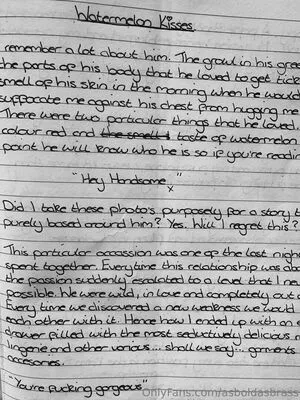 Watermelon Kisses.
remember a lot about him. The growl in his gree
the parts of his body that he loved to get
smell of his skin in the morning when he would
suffocate me against his chest from hugging me
There were two particular things that he loved,
colour red and the smell taste of watermelon
point he will know who he is so if you're readin
"Hey Handsome." x
Did I take these photo's purposely for a story t
purely based around him? Yes. Will I regret this?
This particular occassion was one of the last nigh
spent together. Everytime this relationship was abo
the passion suddenly escalated to a level that I ne
possible. We were wild, in love and completely out
Every time we discovered a new weakness we would
each other with it. Hence how I ended up with an
drawer filled with the most seductively delicious
lingerie and other various... shall we say... garments
accesories.
"You're fucking gorgeous"
OnlyFans.com/asboldasbrass